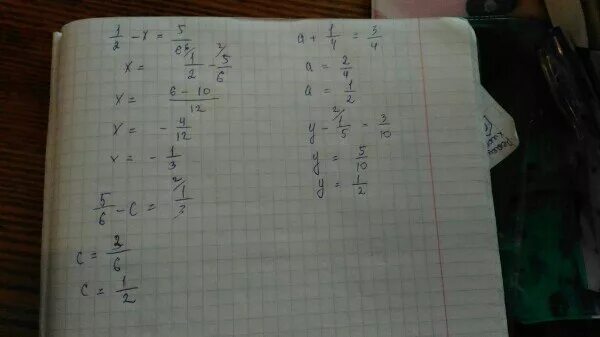 1/2 - x = 5/6
x = 1/2 - 5/6
x = 6-10/12
x = - 4/12
x = - 1/3
5/6 - c = 1/3
c = 2/6
c = 1/2
a + 1/4 = 3/4
a = 2/4
a = 1/2
y - 1/5 = 3/10
y = 5/10
y = 1/2